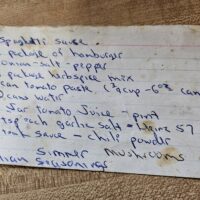 Spaghetti sauce
package of hamburger
onion - salt - pepper
package spice mix
can tomato paste (2/3 cup - 6oz can
cans water
Jar tomato Juice - pint
tsp each garlic salt + 57
sauce - chili powder
Simmer mushrooms
ian seasonings